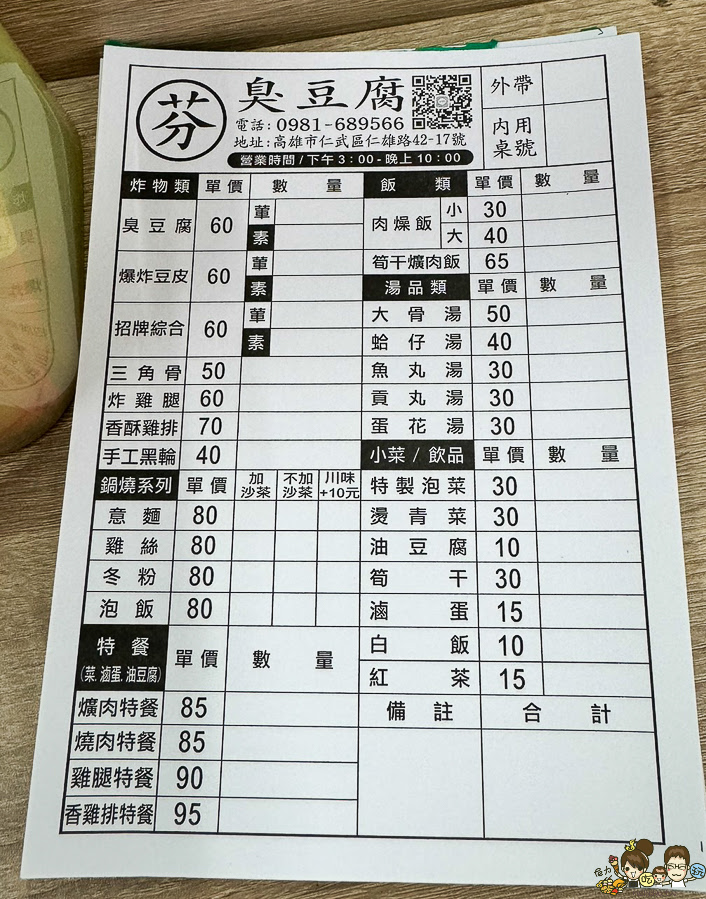 芬 臭豆腐
電話:0981-689566
地址:高雄市仁武區仁雄路42-17號
營業時間/下午3:00-晚上10:00
外帶
內用桌號
炸物類 單價 數量
臭豆腐 60 葷 素
爆炸豆皮 60 葷 素
招牌綜合 60 葷 素
三角骨 50
炸雞腿 60
香酥雞排 70
手工黑輪 40
鍋燒系列 單價 加沙茶 不加沙茶 川味+10元
意麵 80
雞絲 80
冬粉 80
泡飯 80
特餐 單價 數量
(菜.滷蛋.油豆腐)
爌肉特餐 85
燒肉特餐 85
雞腿特餐 90
香雞排特餐 95
飯類 單價 數量
肉燥飯 小 30
大 40
筍干爌肉飯 65
湯品類 單價 數量
大骨湯 50
蛤仔湯 40
魚丸湯 30
貢丸湯 30
蛋花湯 30
小菜/飲品 單價 數量
特製泡菜 30
燙青菜 30
油豆腐 10
筍干 30
滷蛋 15
白飯 10
紅茶 15
備註 合計